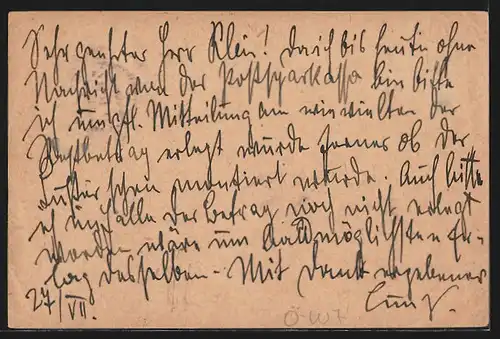 Sehr geehrter Herr Klein! Da ich bis heute ohne
Nachricht von der Postsparkassa bin bitte
ich um gfl. Mitteilung am wievielten der
Restbetrag erlegt wurde ferner ob der
Luster schon montiert wurde. Auch bitte
ich im Falle der Betrag noch nicht erlegt
worden wäre um baldmöglichsten Er-
lag desselben - Mit Dank ergebener
27/VII.